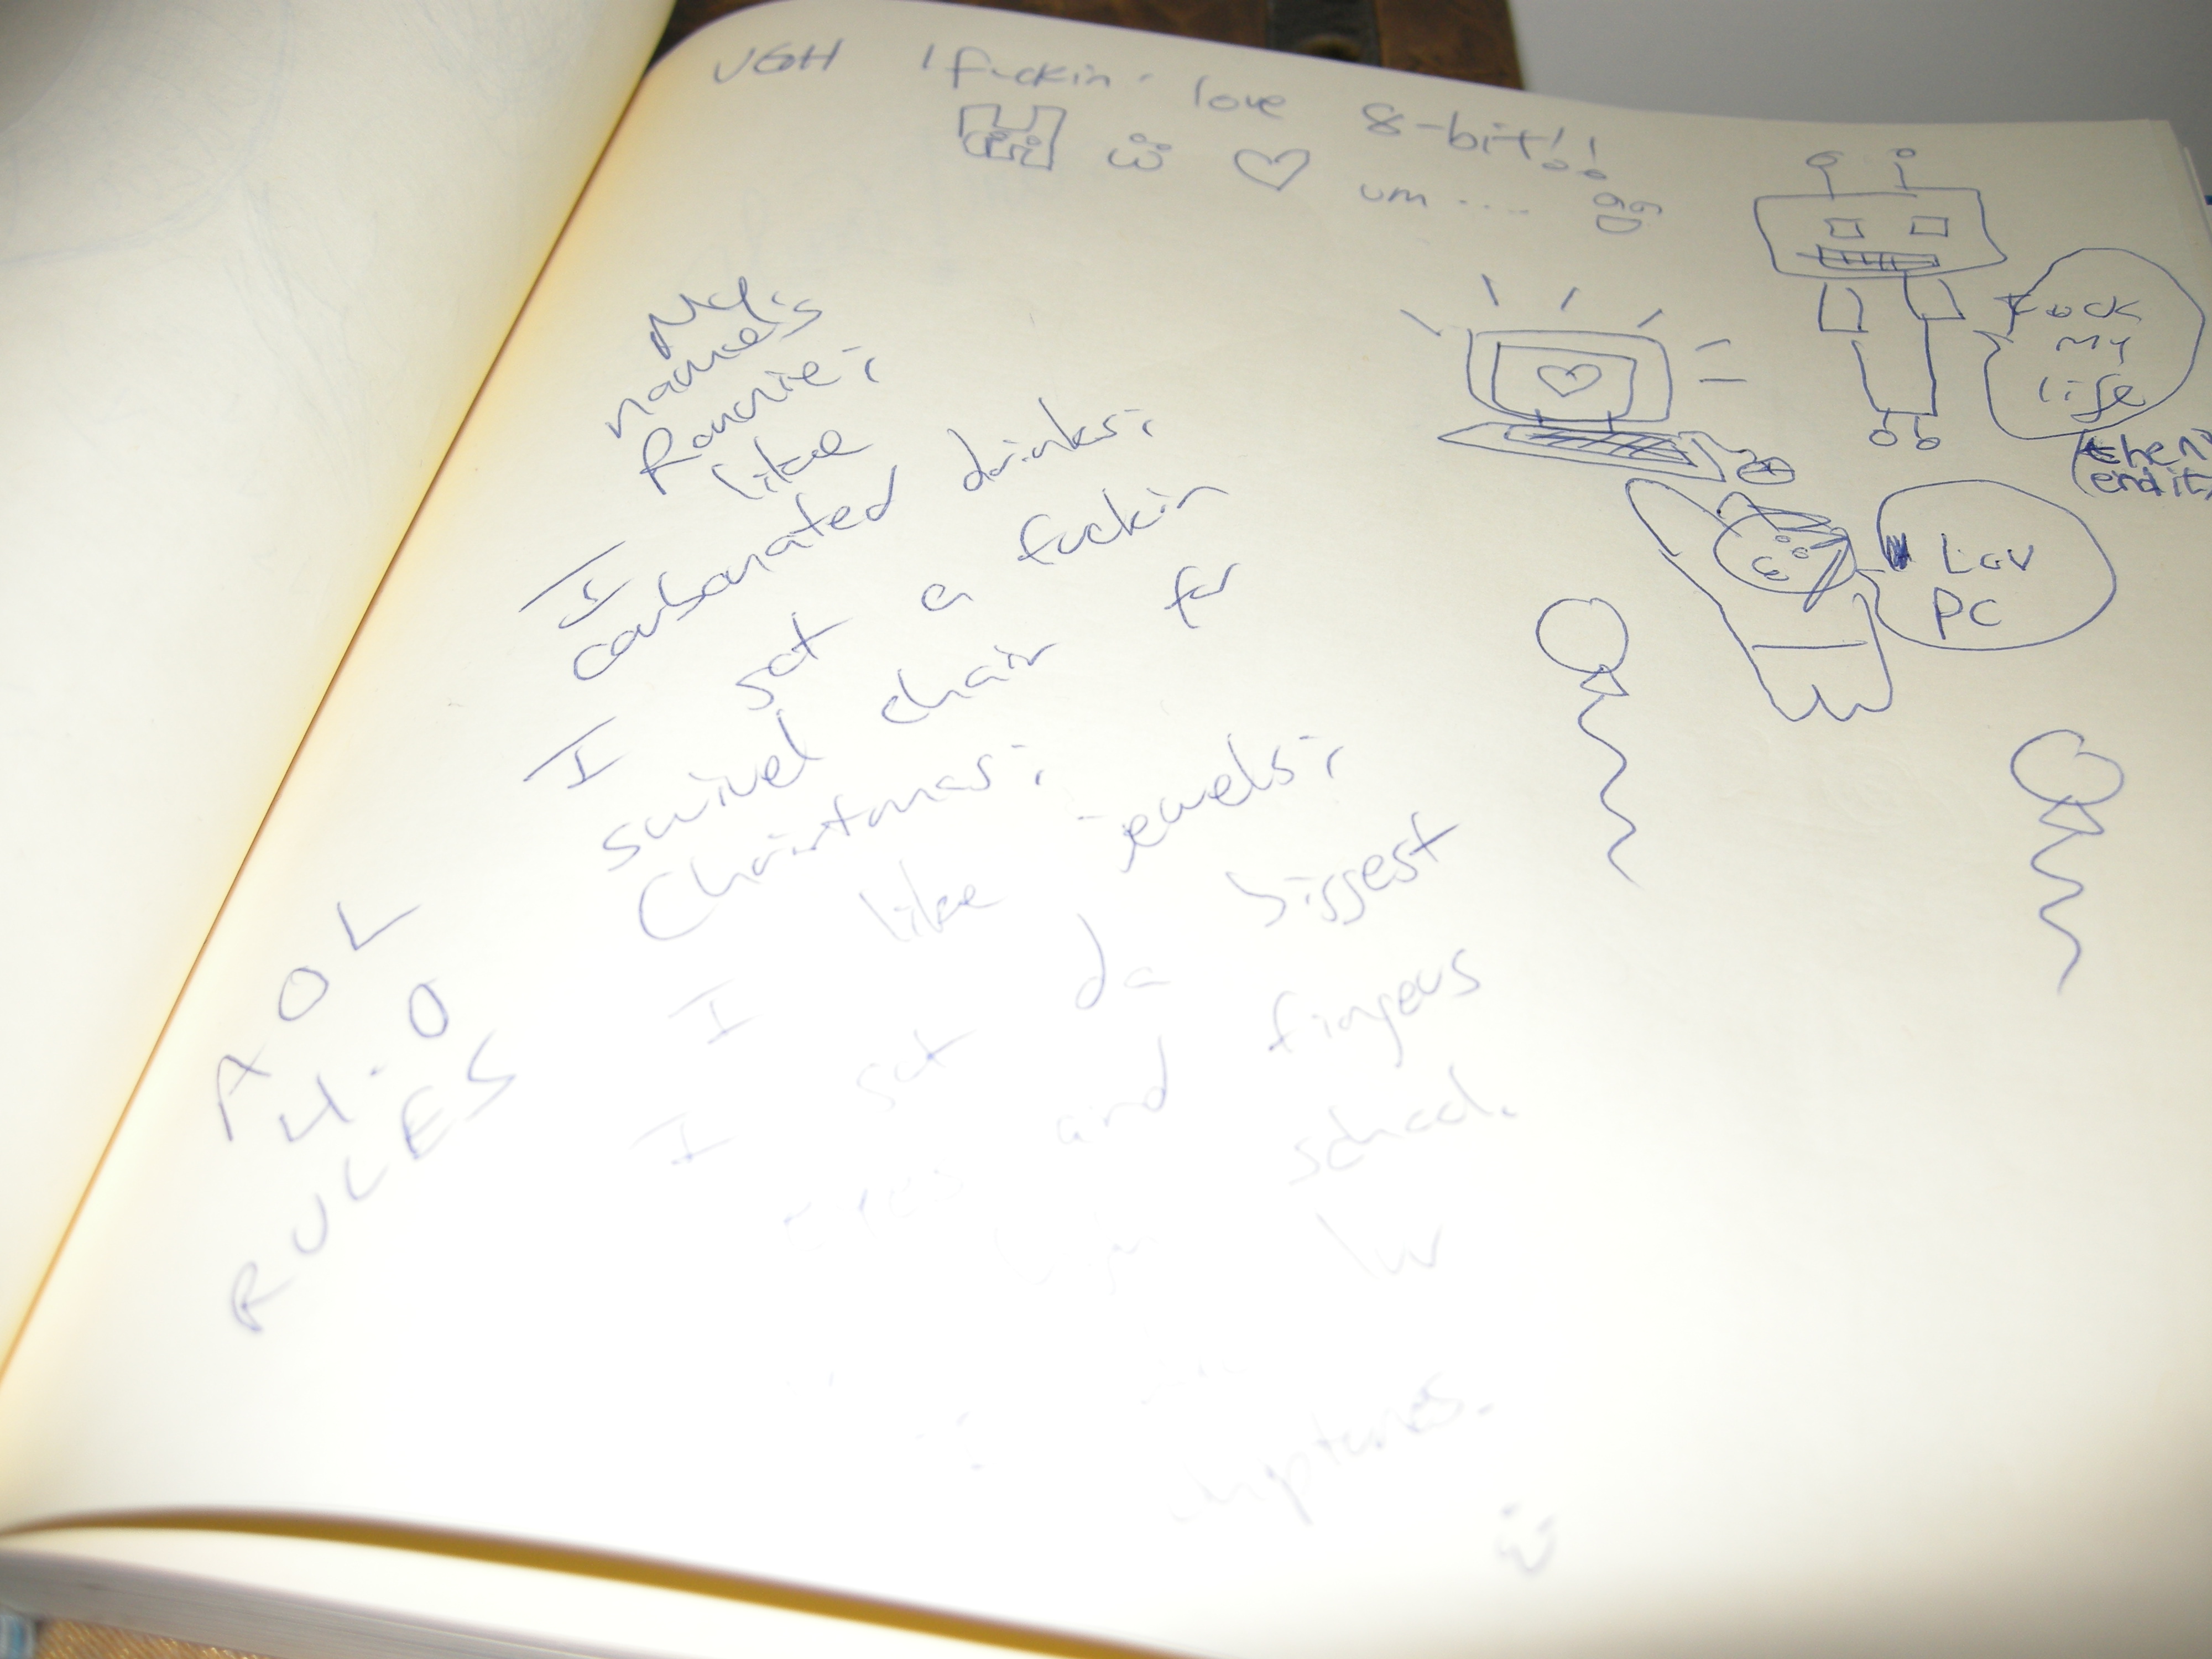 UGH I fuckin' love 8-bit!!
um....
Fuck
My
life
(then
end it)
Luv
PC
My
name's
Ronnie;
I like
carbonated drinks;
I got a fuckin
swivel chair for
Christmas;
I like jewels;
I got da biggest
eyes and fingers
school.
luv
chiptunes.
AOL
4.0
RULES